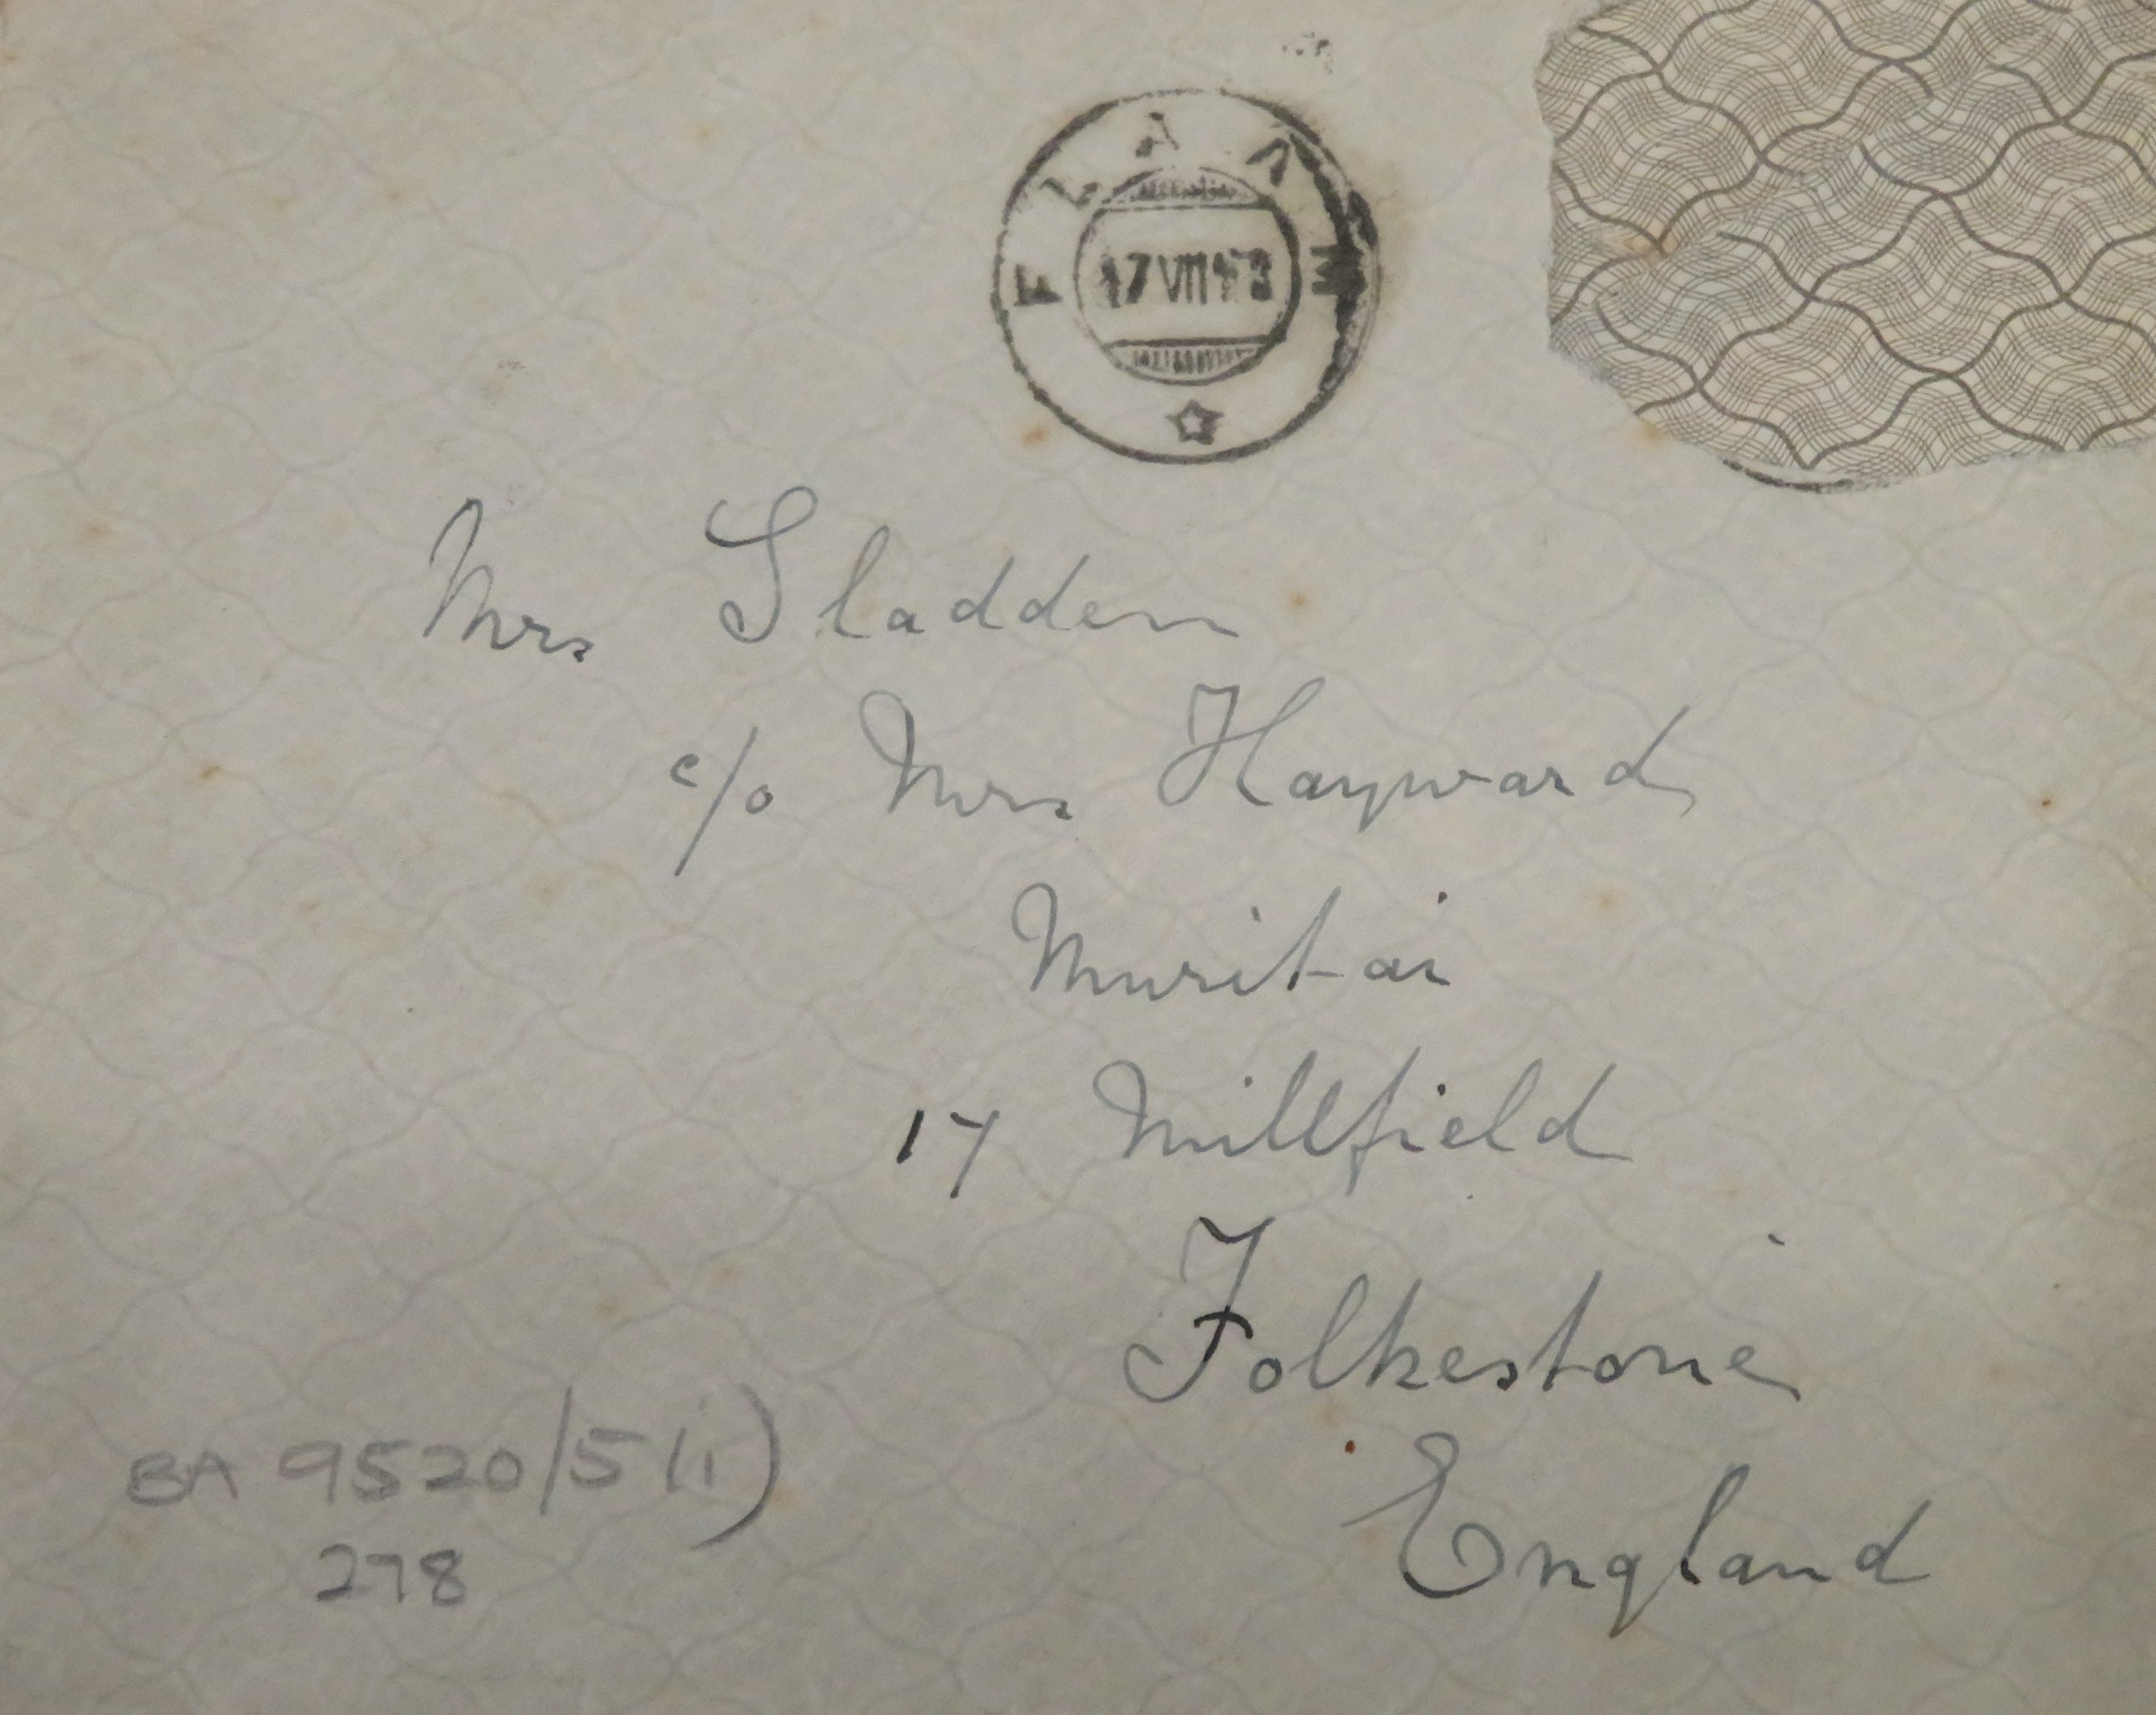 FLAAM
17 VII
Mrs Sladden
c/o Mrs Hayward
Muritai
17 Millfield
Folkestone
England
BA 9520/5(i)
278